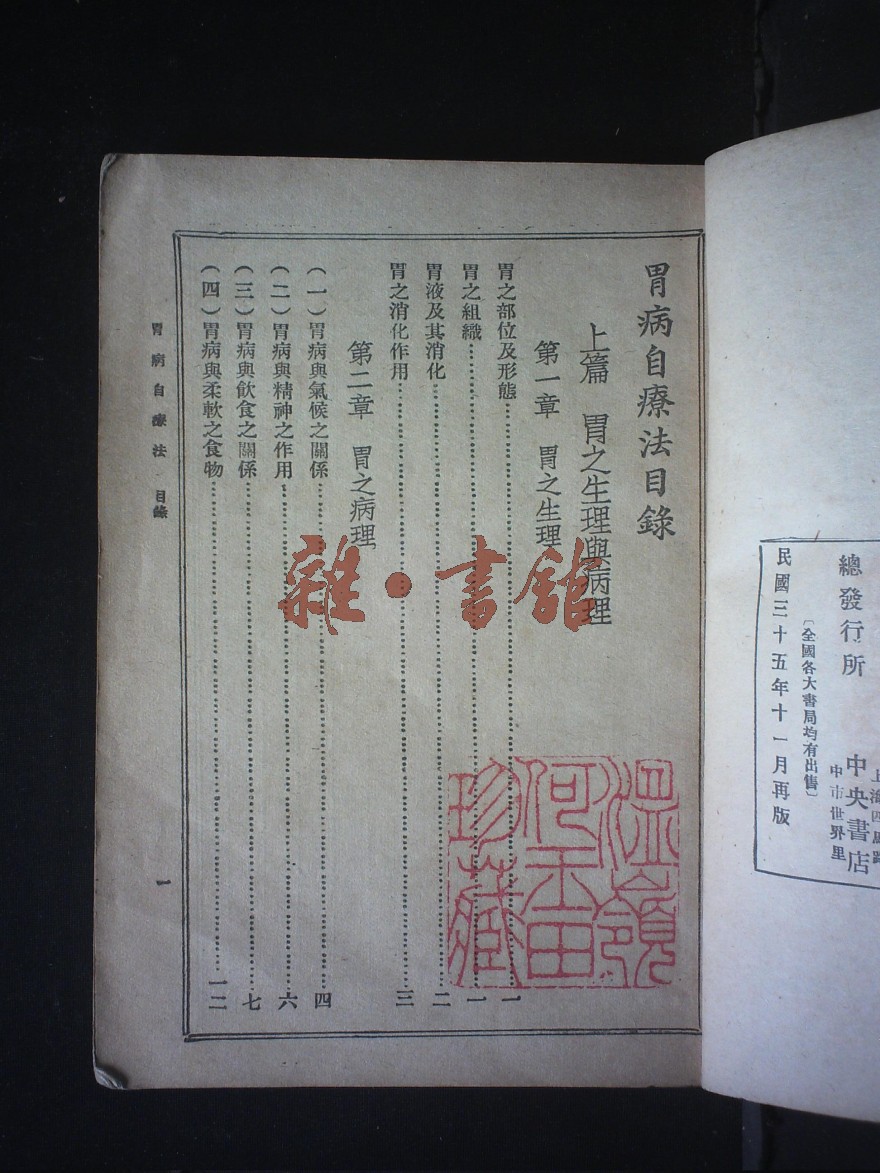 胃病自療法目錄
上篇 胃之生理與病理
第一章 胃之生理
胃之部位及形態……一
胃之組織……一
胃液及其消化……二
胃之消化作用……三
第二章 胃之病理
(一)胃病與氣候之關係……四
(二)胃病與精神之作用……六
(三)胃病與飲食之關係……七
(四)胃病與柔軟之食物……一二
胃病自療法 目錄
一
總發行所
中央書店
中市世界里
〔全國各大書局均有出售〕
民國三十五年十一月再版
雜·書館
溫嶺
何玉田
珍藏